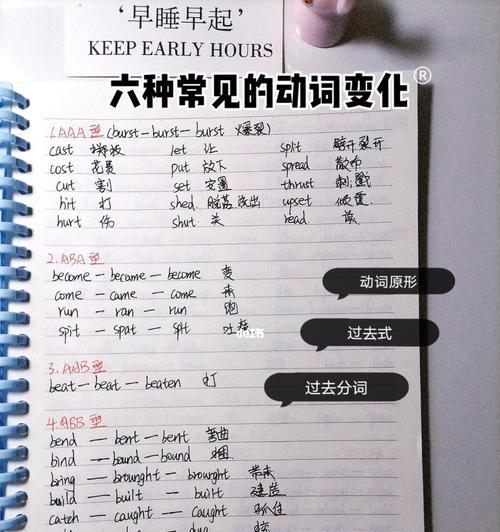 ‘早睡早起’
KEEP EARLY HOURS
六种常见的动词变化®
1.AAA型 (burst-burst-burst 爆裂)
cast 投 let 让 split 劈开,裂开
cost 花费 put 放下 spread 散布
cut 割 set 安置 thrust 刺,戳
hit 打 shed 脱落,流出 upset 倾覆
hurt 伤 shut 关 read 读
2.ABA型
become - became - become 变
动词原形
come - came - come 来
run - ran - run 跑
过去式
spit - spat - spit 吐痰
小红书
3.AAB型
beat - beat - beaten 打
过去分词
4.ABB型
bend - bent - bent 弯曲
bind - bound - bound 捆
bring - brought - brought 带来
build - built - built 建造
catch - caught - caught 抓住